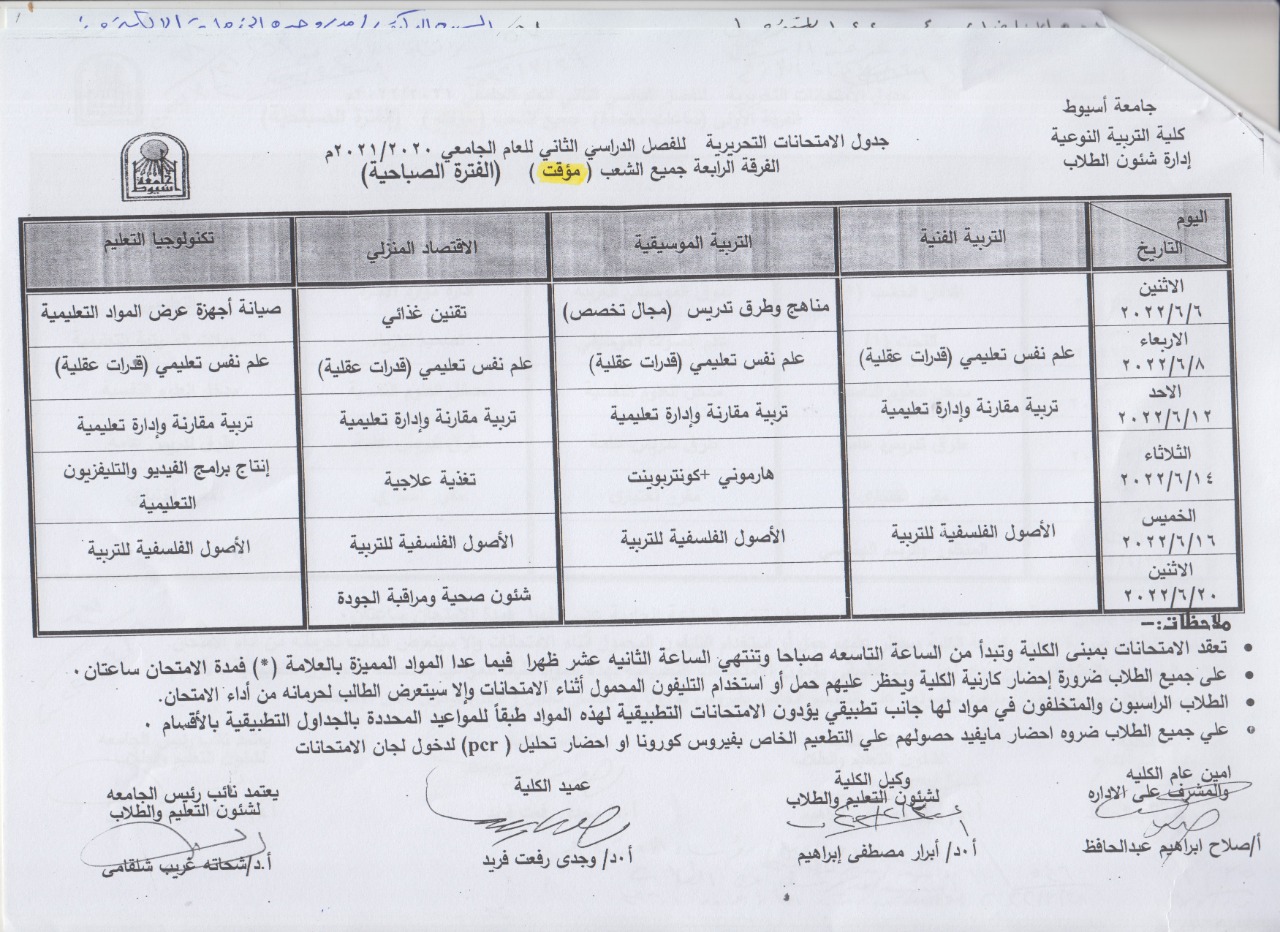 جامعة أسيوط
كلية التربية النوعية
إدارة شئون الطلاب
جدول الامتحانات التحريرية للفصل الدراسي الثاني للعام الجامعي ٢٠٢١/٢٠٢٠م
الفرقة الرابعة جميع الشعب (مؤقت) (الفترة الصباحية)
جامعة أسيوط
اليوم التاريخ التربية الفنية التربية الموسيقية الاقتصاد المنزلي تكنولوجيا التعليم
الاثنين ٢٠٢٢/٦/٦ مناهج وطرق تدريس (مجال تخصص) تقنين غذائي صيانة أجهزة عرض المواد التعليمية
الاربعاء ٢٠٢٢/٦/٨ علم نفس تعليمي (قدرات عقلية) علم نفس تعليمي (قدرات عقلية) علم نفس تعليمي (قدرات عقلية) علم نفس تعليمي (قدرات عقلية)
الاحد ٢٠٢٢/٦/١٢ تربية مقارنة وإدارة تعليمية تربية مقارنة وإدارة تعليمية تربية مقارنة وإدارة تعليمية تربية مقارنة وإدارة تعليمية
الثلاثاء ٢٠٢٢/٦/١٤ هارموني +كونتربوينت تغذية علاجية إنتاج برامج الفيديو والتليفزيون التعليمية
الخميس ٢٠٢٢/٦/١٦ الأصول الفلسفية للتربية الأصول الفلسفية للتربية الأصول الفلسفية للتربية الأصول الفلسفية للتربية
الاثنين ٢٠٢٢/٦/٢٠ شئون صحية ومراقبة الجودة
ملاحظات:-
• تعقد الامتحانات بمبنى الكلية وتبدأ من الساعة التاسعه صباحا وتنتهي الساعة الثانيه عشر ظهرا فيما عدا المواد المميزة بالعلامة (*) فمدة الامتحان ساعتان.
• على جميع الطلاب ضرورة إحضار كارنية الكلية ويحظر عليهم حمل أو استخدام التليفون المحمول أثناء الامتحانات وإلا سيتعرض الطالب لحرمانه من أداء الامتحان.
• الطلاب الراسبون والمتخلفون في مواد لها جانب تطبيقي يؤدون الامتحانات التطبيقية لهذه المواد طبقاً للمواعيد المحددة بالجداول التطبيقية بالأقسام .
• علي جميع الطلاب ضروه احضار مايفيد حصولهم علي التطعيم الخاص بفيروس كورونا او احضار تحليل ( pcr) لدخول لجان الامتحانات
امين عام الكليه
والمشرف على الاداره
أ/صلاح ابراهيم عبدالحافظ
وكيل الكلية
لشئون التعليم والطلاب
أ.د/ أبرار مصطفى إبراهيم
عميد الكلية
أ.د/ وجدى رفعت فريد
يعتمد نائب رئيس الجامعه
لشئون التعليم والطلاب
أ.د/شحاته غريب شلقامى